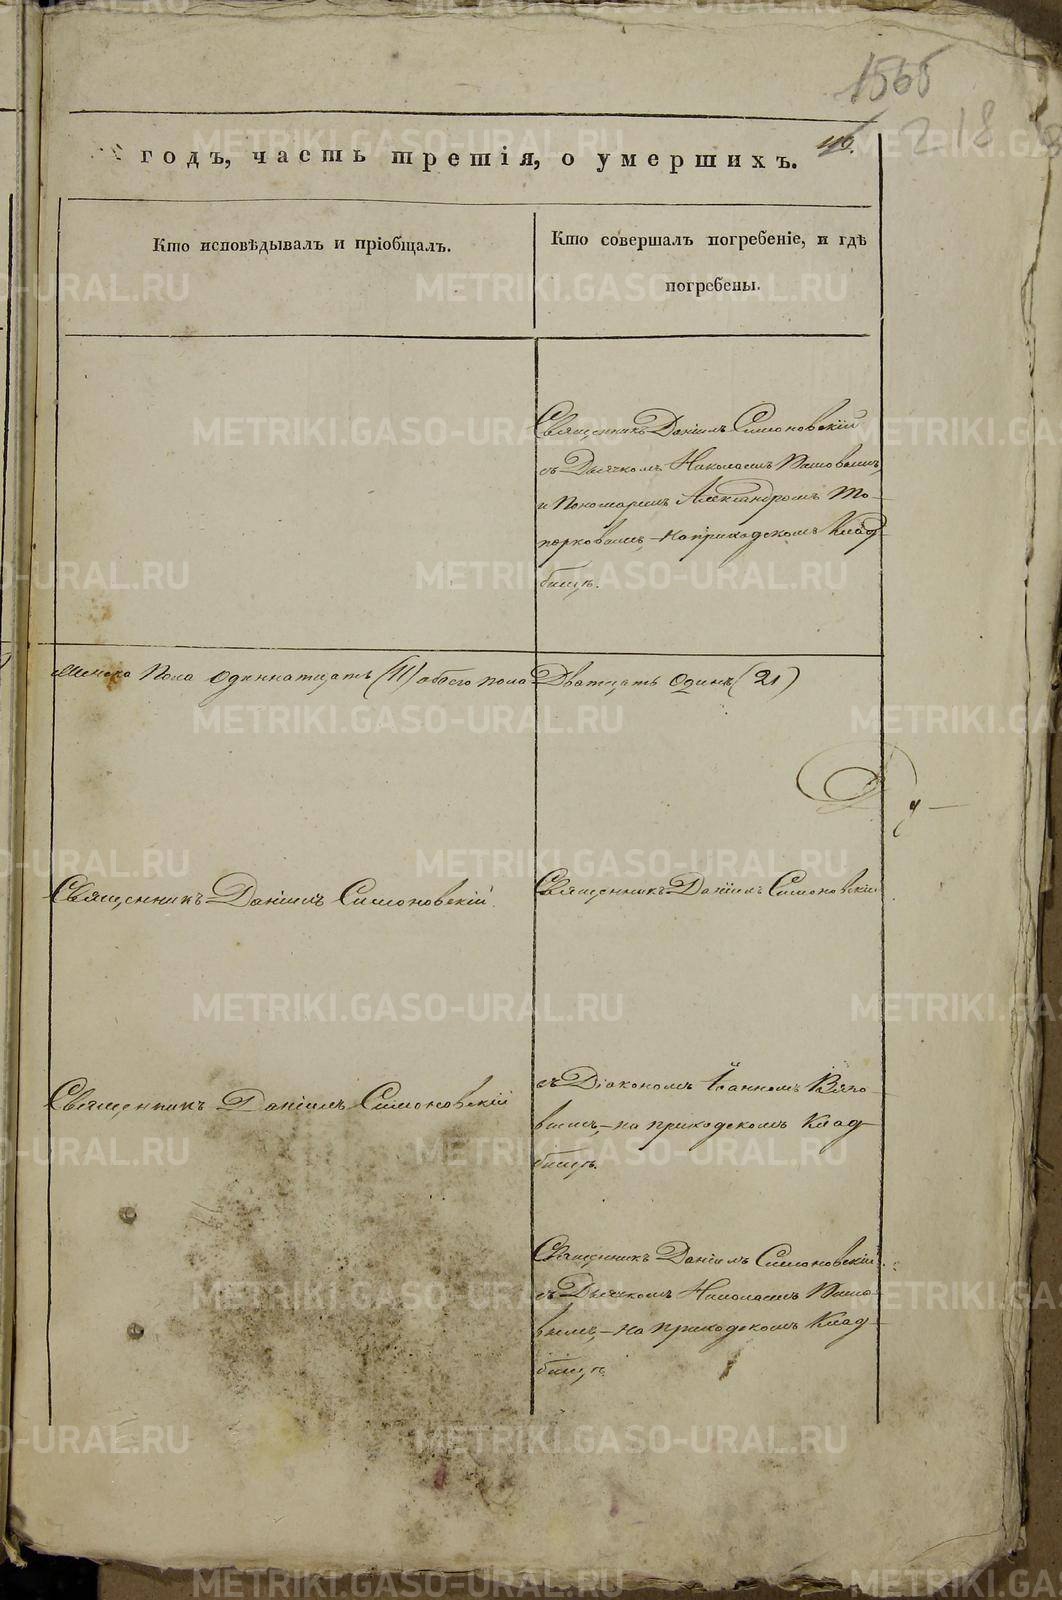 1565
218
годъ, часть третія, о умершихъ.
Кто исповѣдывалъ и пріобщалъ.
Кто совершалъ погребеніе, и гдѣ
погребены.
Священникъ Даніилъ Симоновскій
съ Дьячкомъ Николаемъ
и Пономаремъ Александромъ То-
порковымъ, на приходскомъ Клад-
бищѣ.
Женска Пола одиннатцать (11) обоего пола Дватцать Одинъ (21)
Священникъ Даніилъ Симоновскій.
Священникъ Даніилъ Симоновскій
Священникъ Даніилъ Симоновскій
съ Діакономъ Іоанномъ
вымъ, на приходскомъ Клад-
бищѣ.
Священникъ Даніилъ Симоновскій
съ Дьячкомъ Николаемъ
вымъ, на приходскомъ Клад-
бищѣ.
METRIKI.GASO-URAL.RU